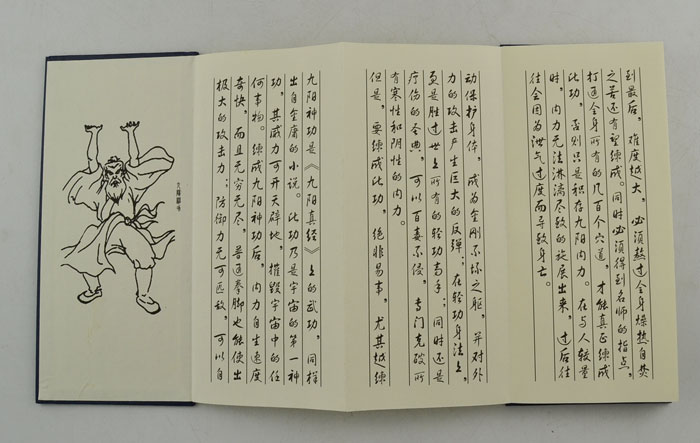 九阳神功是《九阳真经》上的武功，同样
出自金庸的小说。此功乃是宇宙的第一神
功，其威力可开天辟地，摧毁宇宙中的任
何事物。练成九阳神功后，内力自生速度
奇快，而且无穷无尽，普通拳脚也能使出
极大的攻击力；防御力无可匹敌，可以自
动保护身体，成为金刚不坏之躯，并对外
力的攻击产生巨大的反弹；在轻功身法上，
更是胜过世上所有的轻功高手；同时还是
疗伤的圣典，可以百毒不侵，专门克破所
有寒性和阴性的内力。
但是，要练成此功，绝非易事，尤其越练
到最后，难度越大，必须熬过全身燥热自焚
之苦还有望练成。同时必须得到名师的指点，
打通全身所有的几百个穴道，才能真正练成
此功，否则只是积存九阳内力。在与人较量
时，内力无法淋漓尽致的施展出来，过后往
往会因为泄气过度而导致身亡。